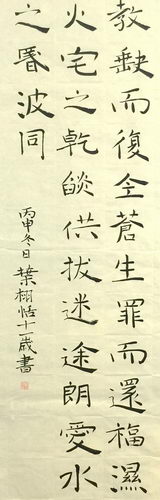 教缺而復全蒼生罪而還福濕
火宅之乾燄供拔迷途朗愛水
之昬波同
丙申冬日葉栩恬十一歲書